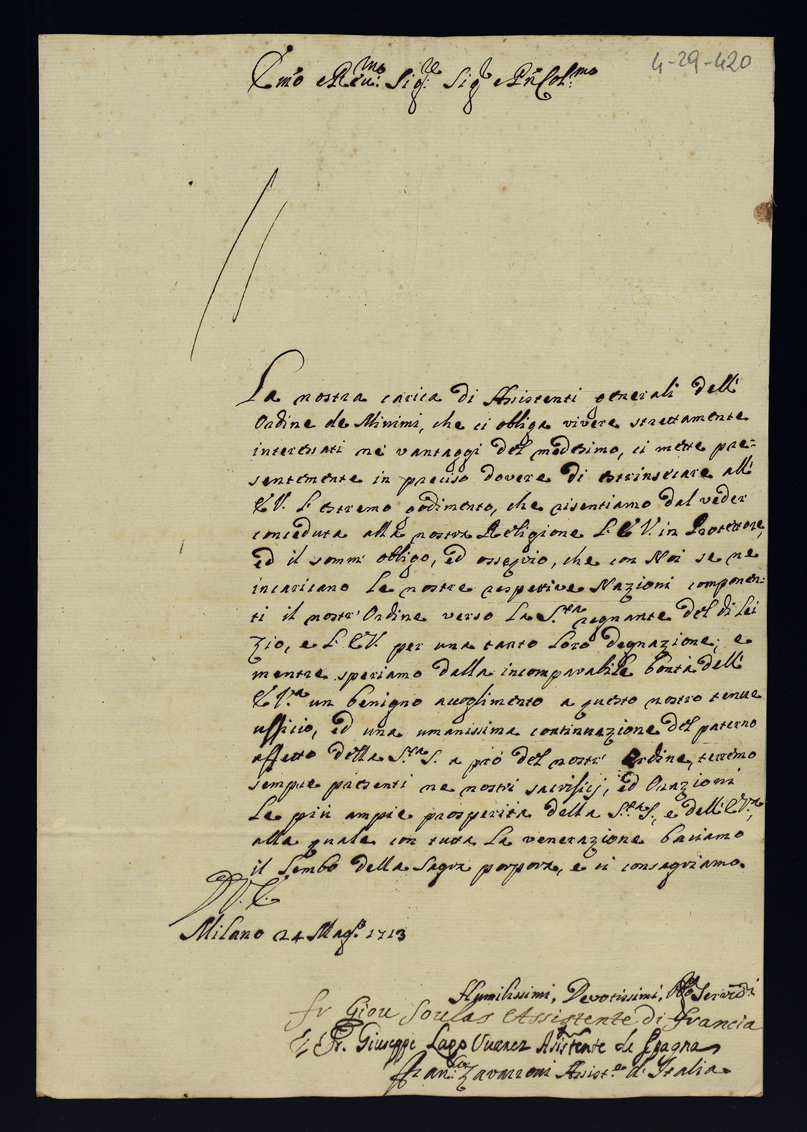 4-29-420
Emo e Reu:mo Sig:r Sig:r e Pñ Col:mo
La nostra carica di Assistenti generali dell'
Ordine de Minimi, che ci obliga vivere strettamente
interessati ne vantaggi del medesimo, ci mette pre=
sentemente in preciso dovere di estrinsecare all'
E.V. L'estremo godimento, che risentiamo dal veder
conceduta alla nostra Religione L'E.V. in Protettore,
ed il somm' obligo, ed ossequio, che con Noi se ne
incaricano Le nostre respettive Nazioni componen=
ti il nostr'Ordine verso La S.tta regnante del di Lei
Zio, e L'E.V. per una tanto Loro degnazione; e
mentre speriamo dalla incomparabile bontà dell'
E.V.ra un benigno accoglimento a questo nostro tenue
ufficio, ed una umanissima continuazione del paterno
affetto della S.tta S. a prò del nostr' Ordine, terremo
sempre presenti ne nostri sacrificj, ed Orazioni
Le più ampie prosperità della S.tta S., e dell'E.V.ra,
alla quale con tutta La venerazione baciamo
il Lembo della Sagra porpora, e ci consagriamo.
D. V. E.
Milano 24 Mag.o 1713
Humilissimi, Devotissimi, Servidi
fr Giou Soulas Assistente di Francia
Fr. Giuseppe Lago Suarez Assistente de Spagna
fr Fran:co Zavarroni Assist.e d'Italia.